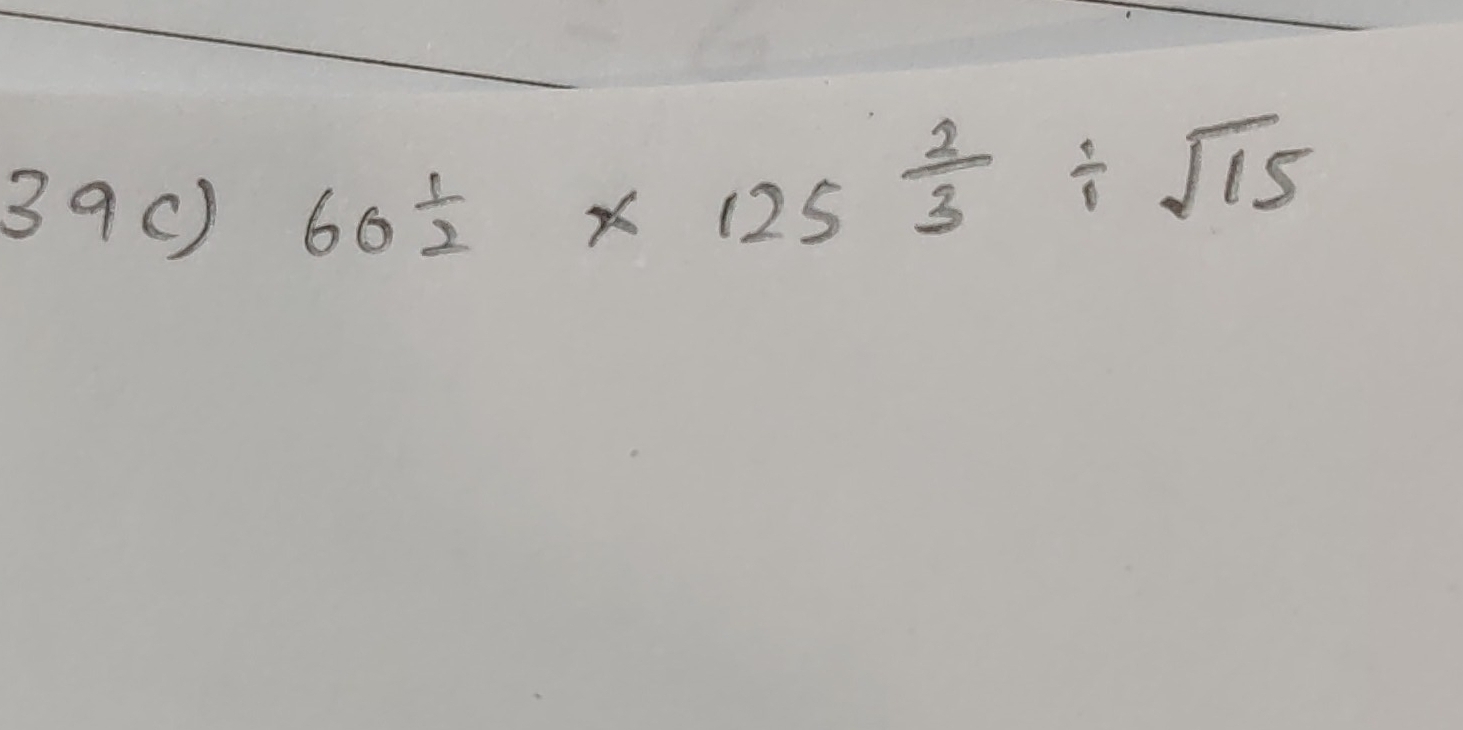 39c) 60 1/2 × 125 2/3 ÷ √15